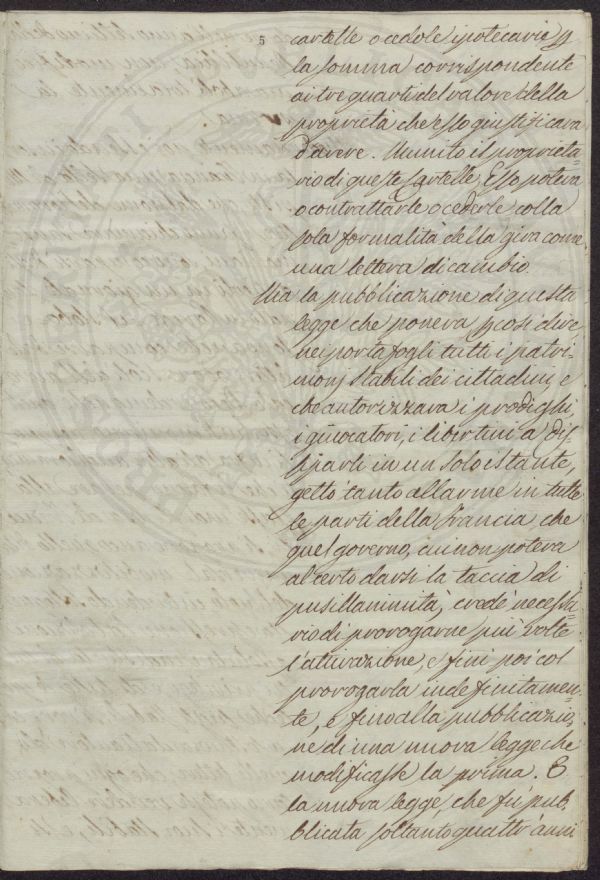 5
cartelle o cedole ipotecarie p
la somma corrispondente
ai tre quarti del valore della
proprietà che esso giustificava
d'avere. Munito il proprieta=
rio di queste cartelle, Esso poteva
o contrattarle o cederle colla
sola formalità della gira come
una lettera di cambio.
Ma la pubblicazione di questa
legge che poneva p così dire
nei portafogli tutti i patri=
monj stabili dei cittadini, e
che autorizzava i prodighi,
i giuocatori, i libertini a dis=
siparli in un solo istante,
gettò tanto allarme in tutte
le parti della Francia, che
quel governo, cui non poteva
al certo darsi la taccia di
pusillanimità, credè necessa=
rio di prorogarne più volte
l'attivazione, e finì poi col
prorogarla indefinitamen=
te, e fino alla pubblicazio=
ne di una nuova legge che
modificasse la prima. E
la nuova legge, che fù pub=
blicata soltanto quattr'anni